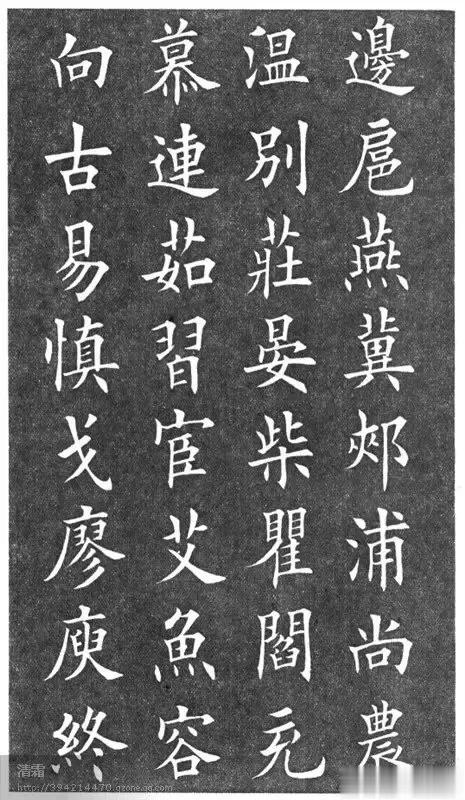 邊扈燕冀郟浦尚農
温別莊晏柴瞿閻充
慕連茹習宦艾魚容
向古易慎戈廖庾終
清霜
http://394214470.qzone.qq.com